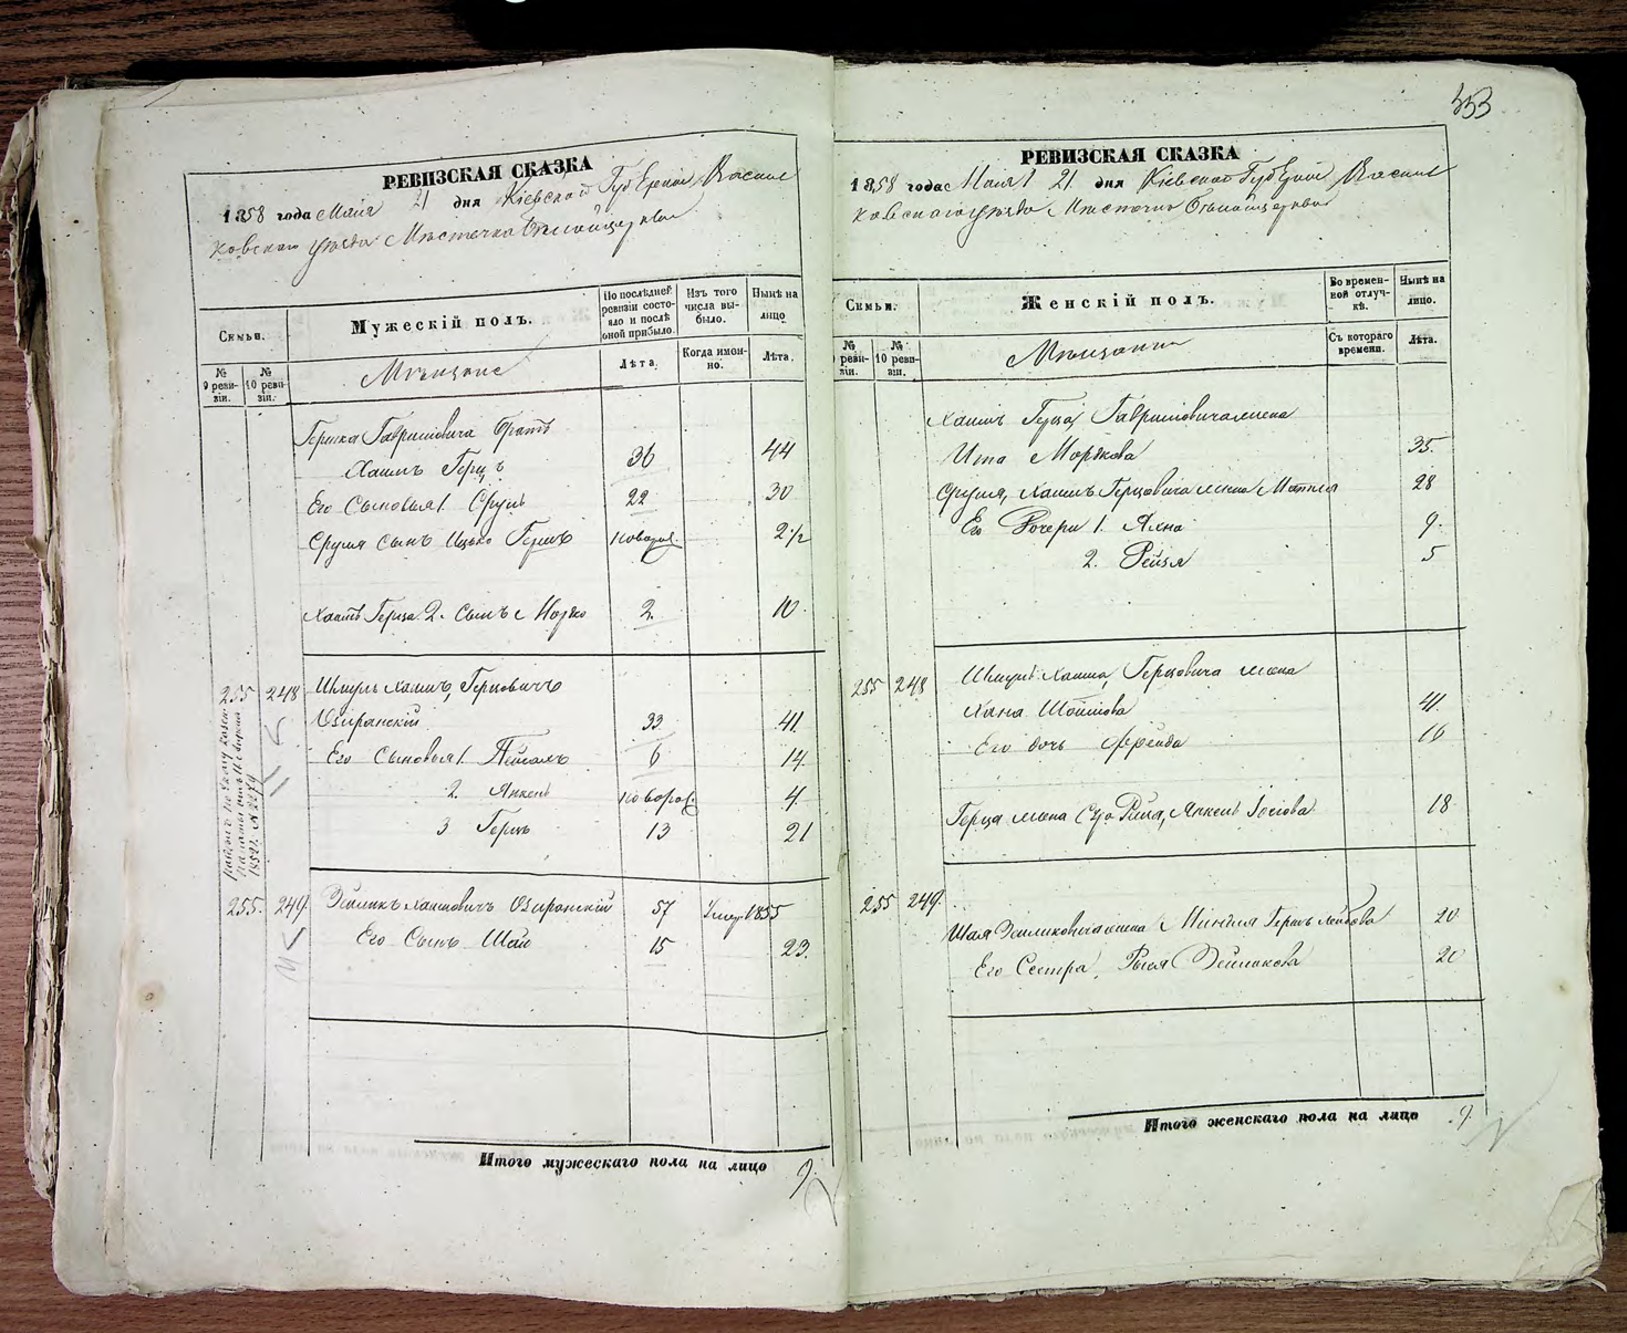 РЕВИЗСКАЯ СКАЗКА
1858 года Мая 21 дня Кіевской Губерніи Василь
ковскаго уѣзда Мѣстечка
Семьи.
Мужескій полъ.
По послѣдней ревизіи состояло и послѣ оной прибыло.
Изъ того числа выбыло.
Нынѣ на лицо
№ 9 ревизіи.
№ 10 ревизіи.
Мѣщане
Лѣта.
Когда именно.
Лѣта.
Гершка Гавриловича братъ
Хаимъ Герцъ 36 44
Его Сыновья 1. Сруль 22 30
Сруля сынъ Ицько Гершъ новорож. 2 1/2
Хаимъ Герца 2. сынъ Морко 2. 10.
255 248 Шмуль Хаимъ Герцовичъ
Озиранскій 33 41.
Его Сыновья 1. Пейсахъ 6 14.
2. Янкель новорож. 4.
3 Герцъ 13 21
255. 249. Зейликъ Хаимовичъ Озиранскій 57 Умер. 1855
Его Сынъ Шая 15 23.
Итого мужескаго пола на лицо 9.
353
РЕВИЗСКАЯ СКАЗКА
1858 года Мая 21 дня Кіевской Губерніи Василь
ковскаго уѣзда Мѣстечка
Семьи.
Женскій полъ.
Во временной отлучкѣ.
Нынѣ на лицо.
№ 9 ревизіи.
№ 10 ревизіи.
Мѣщанки
Съ котораго времени.
Лѣта.
Хаимъ Герца Гавриловича жена
Ита Моркова 35.
Сруля, Хаимъ Герцовича жена 28
Его Дочери 1. Яхна 9.
2. Рейзя 5
255 248 Шмуль Хаима Герцовича жена
Хана 41.
Его дочь Фрейда 16
Герца жена Янкель 18
255 249. Шая Зейликовича жена Миндля Гершъ Лейбова 20
Его Сестра, Рыся Зейликова 20
Итого женскаго пола на лицо 9.